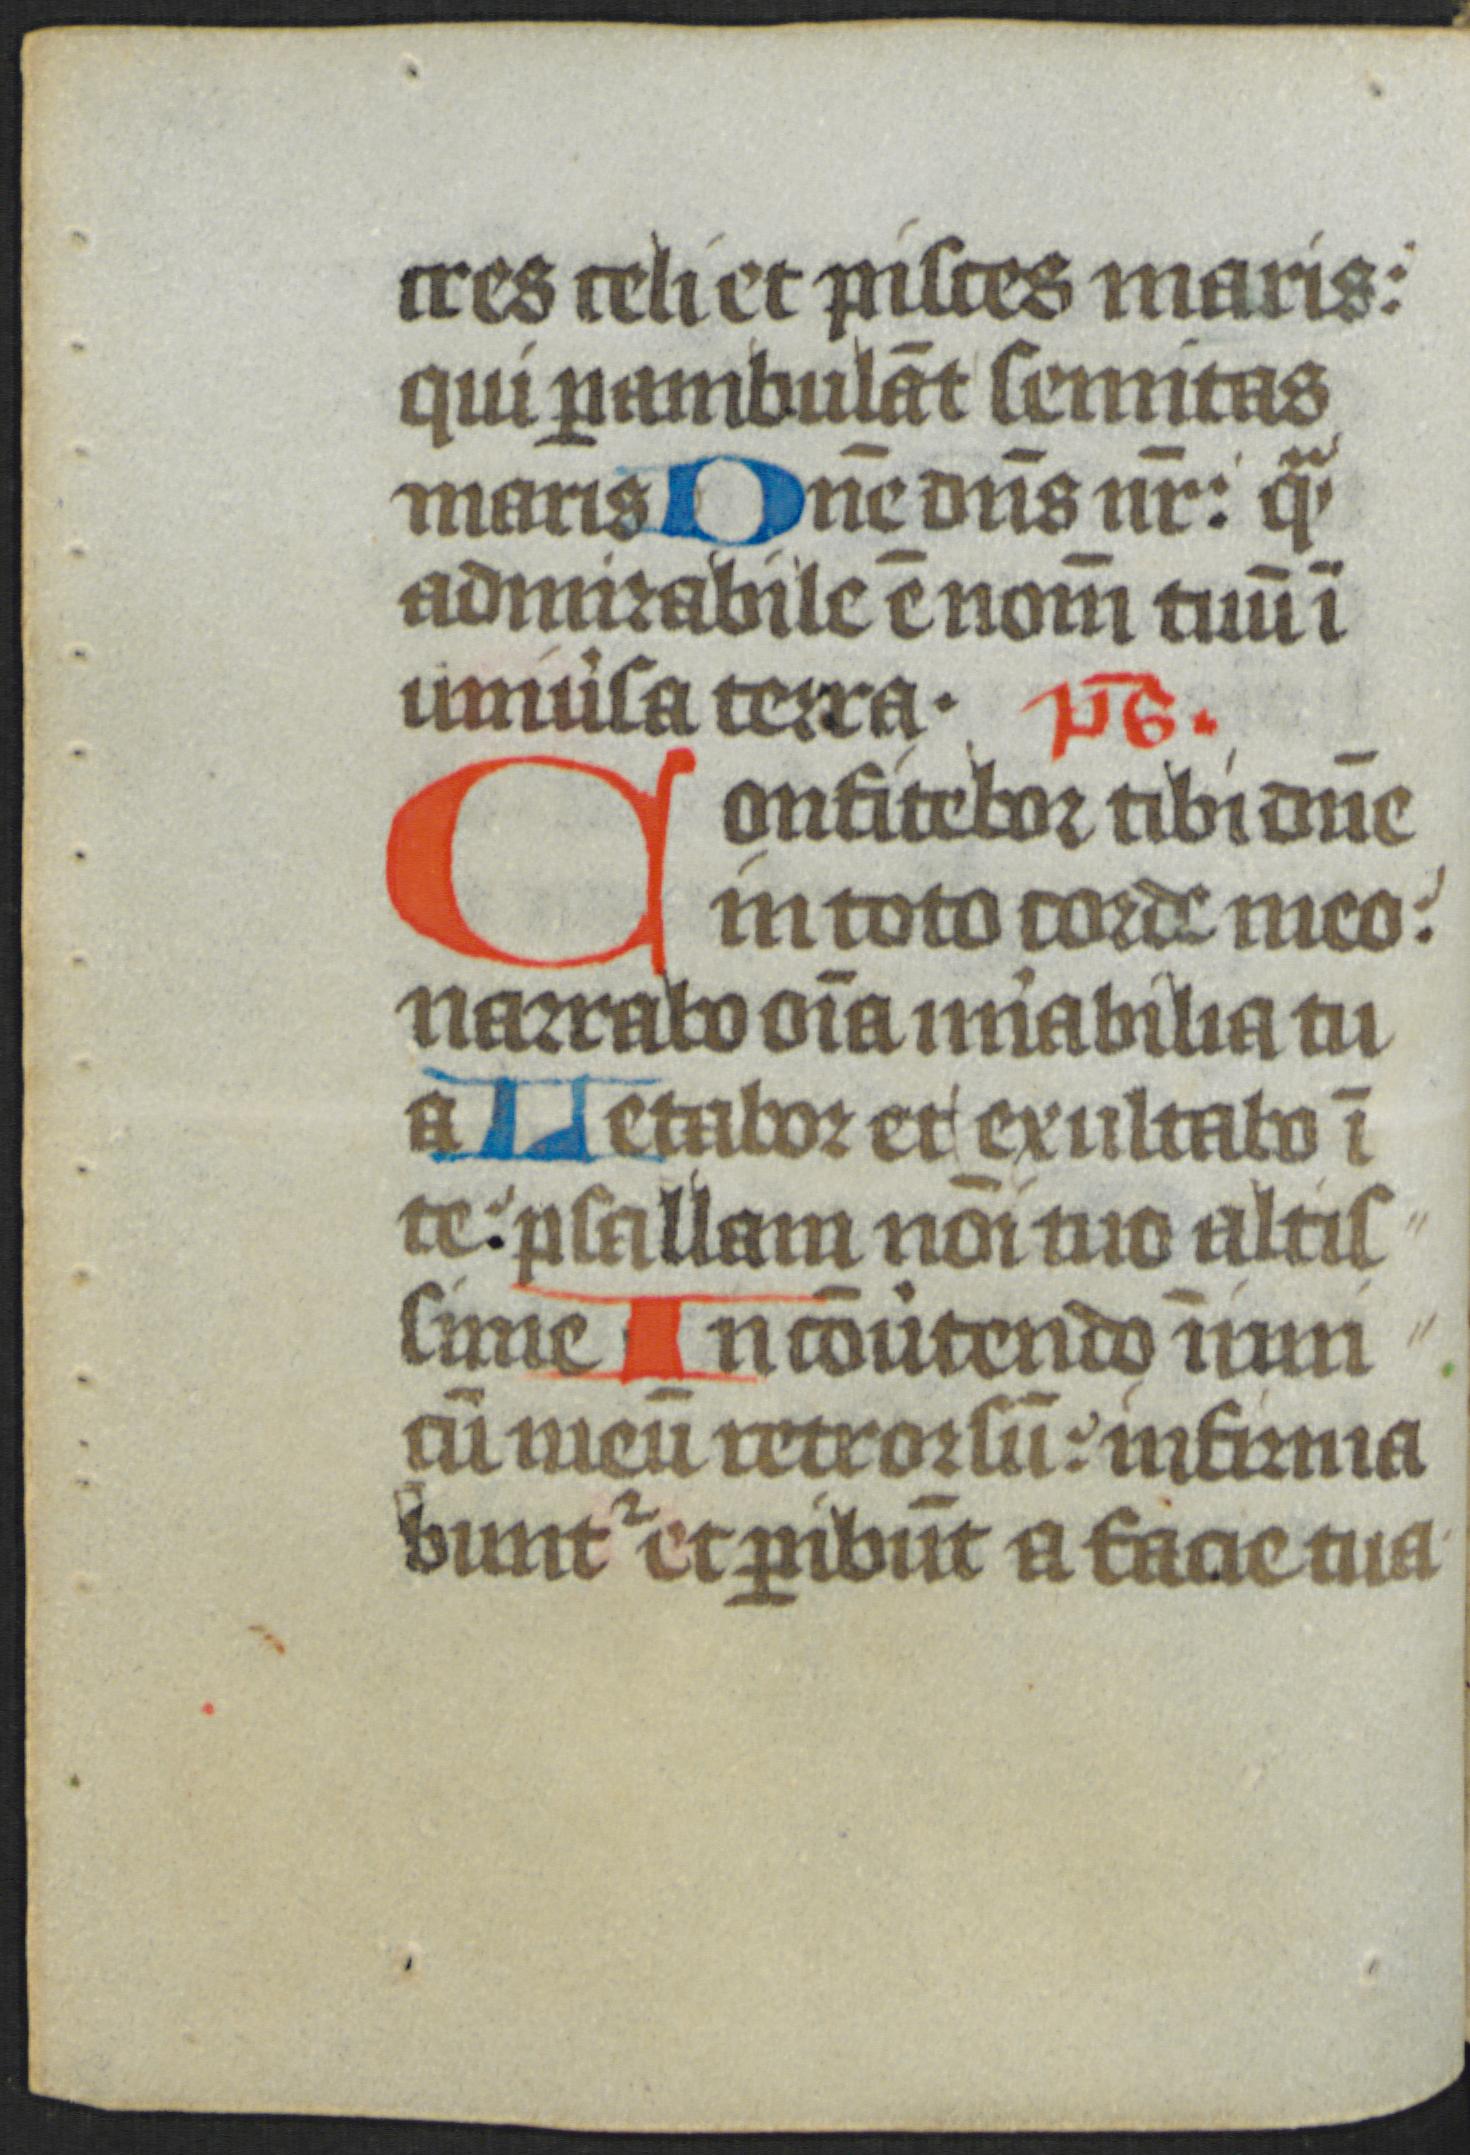 cres celi et pisces maris:
qui ꝑambulāt semitas
maris Dn̄e dn̄s nr̄: qᷓ
admirabile ē nom̅ tuū ī
uniu͛sa terra. ps̄.
Confitebor tibi dn̄e
in toto corde meo:
narrabo oīa mi͛abilia tu
a Letabor et exultabo ī
te: psallam nōi tuo altis
sime In cōu͛tendo īnimi
cū meū retrorsū: infirma
bunt᷑ et ꝑibūt a facie tua